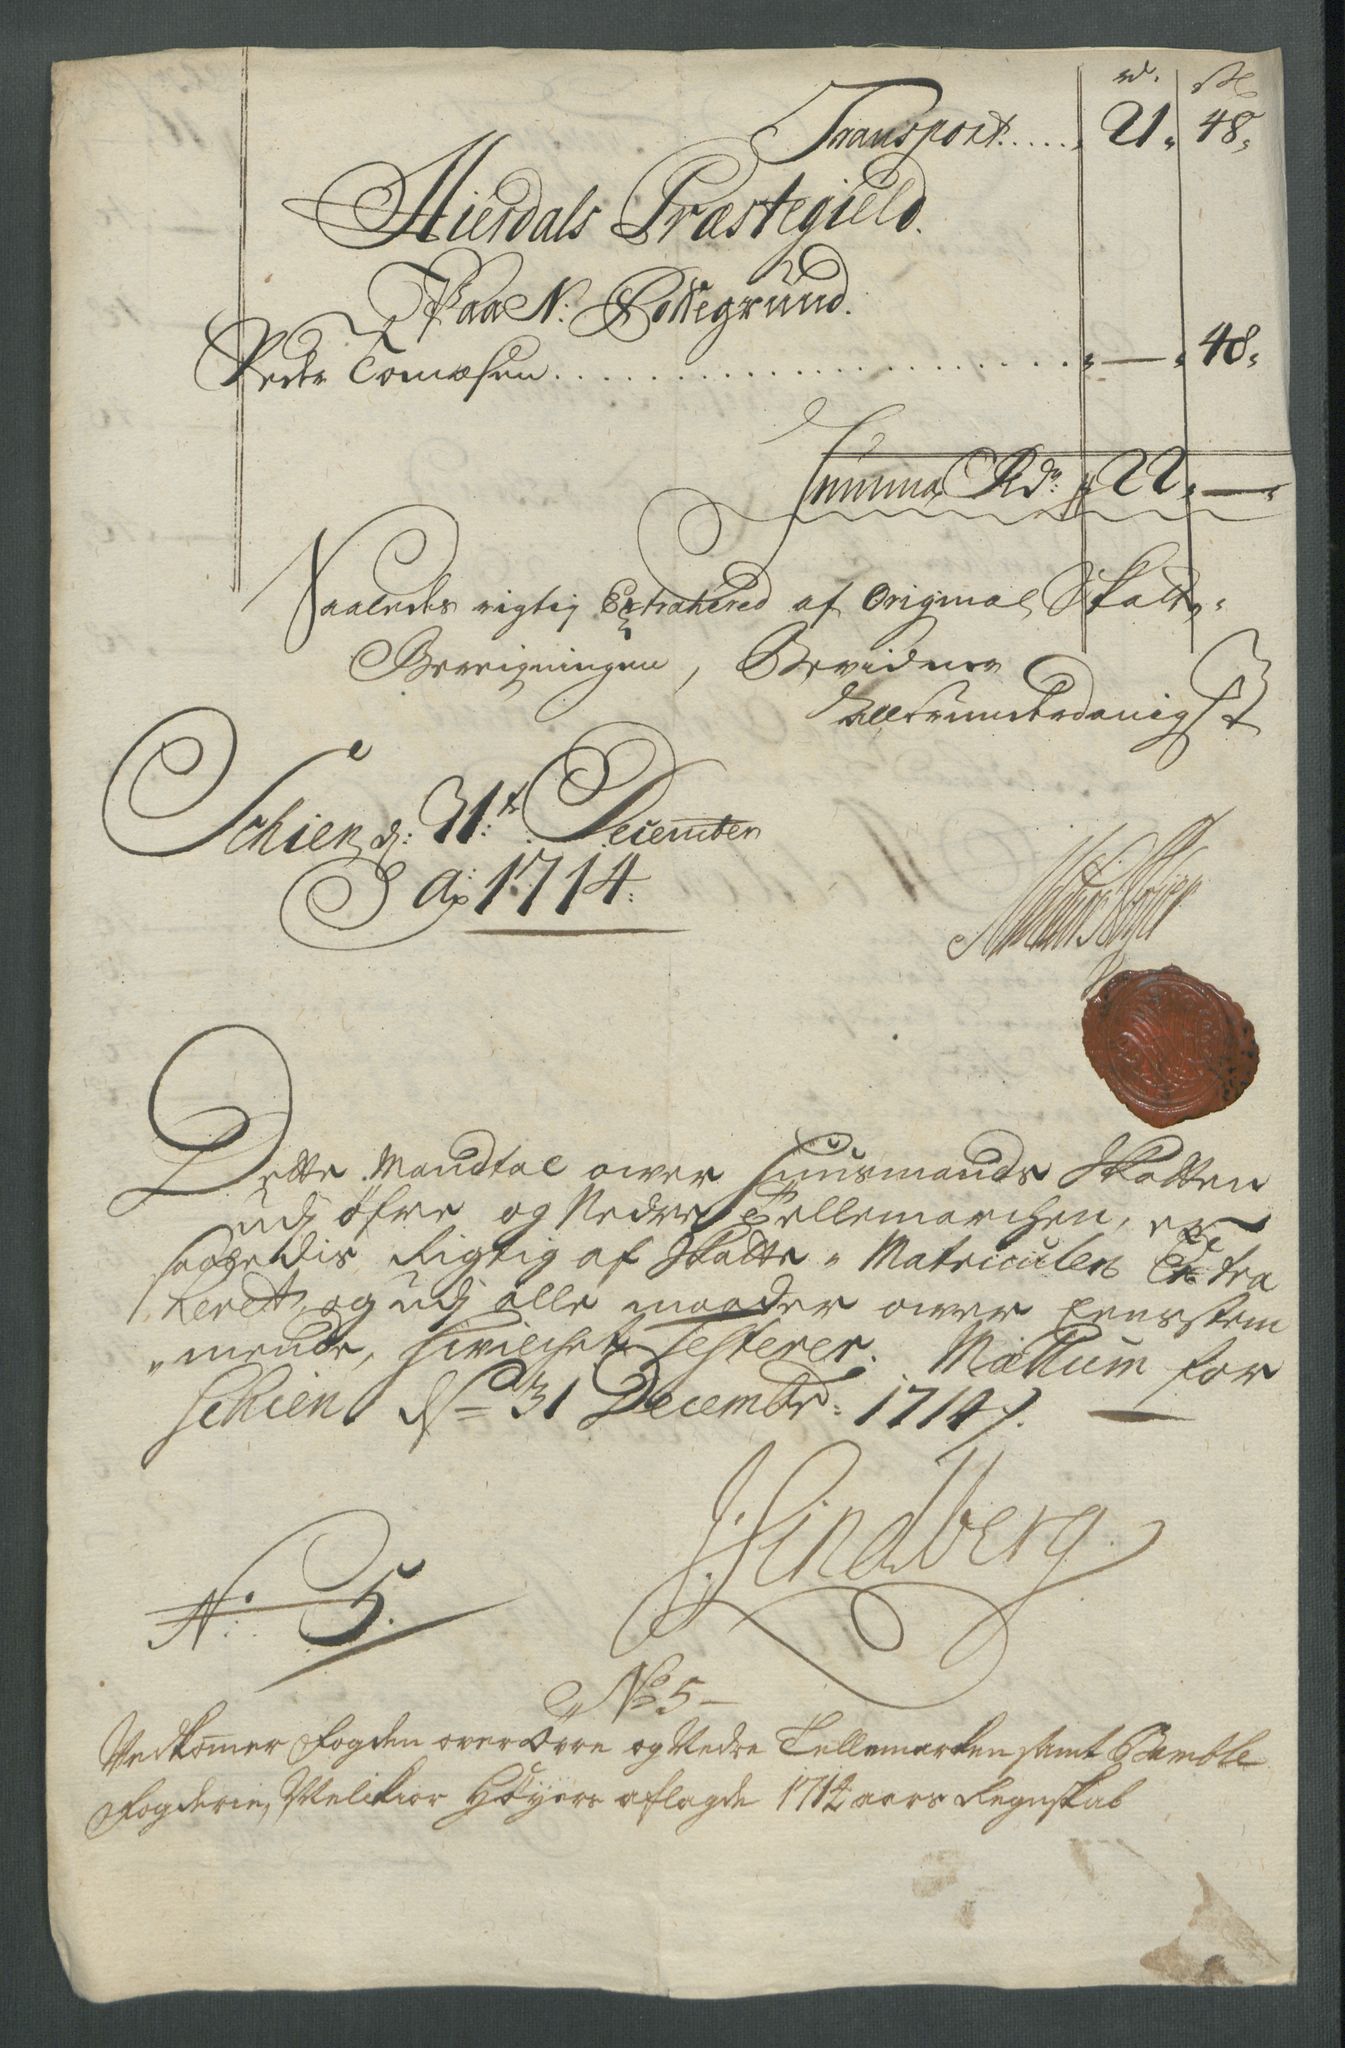 rd. sk
Transport..... 21. 48.
Hierdals Præstegield.
Paa N: Follegrund.
Peder Tomæsen............. — 48.
Summa Rdr. 22. —
Saaledes rigtig Extrahered af Original Skatte-
Bereigningen, Bevidner
Allerunderdanigst
Schien d: 31te December
Ao 1714.
Dette Mandtal over Huusmands Skatten
udj öfre og Nedre Tellemarchen, er
saaledis Rigtig af Skatte-Matriculen Extra
heret, og udj alle maader over eensstem
-mende, hvilchet Testerer. Mællum for
Schien d 31 Decembr: 1714.
J. Lindberg
No: 5.
No 5
Vedkommer Fogden over Övre og Nedre Tellemarken samt Bamble
Fogderie, Melchior Höyers aflagde 1714 aars Regnskab